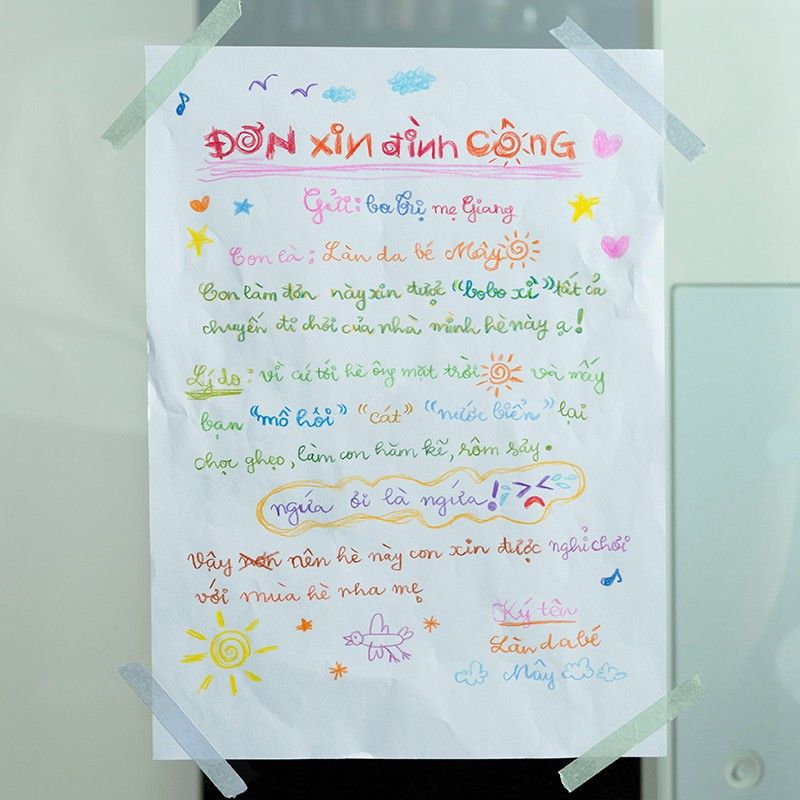 ĐƠN XIN đình CÔNG
Gửi: ba Trị mẹ Giang
Con là: Làn da bé Mây
Con làm đơn này xin được "bobo xì" tất cả
chuyến đi chơi của nhà mình hè này ạ!
Lý do: vì cứ tới hè ông mặt trời và mấy
bạn "mồ hôi" "cát" "nước biển" lại
chọc ghẹo, làm con hăm kẽ, rôm sảy.
ngứa ơi là ngứa!
Vậy nên hè này con xin được nghỉ chơi
với mùa hè nha mẹ
Ký tên
Làn da bé
Mây